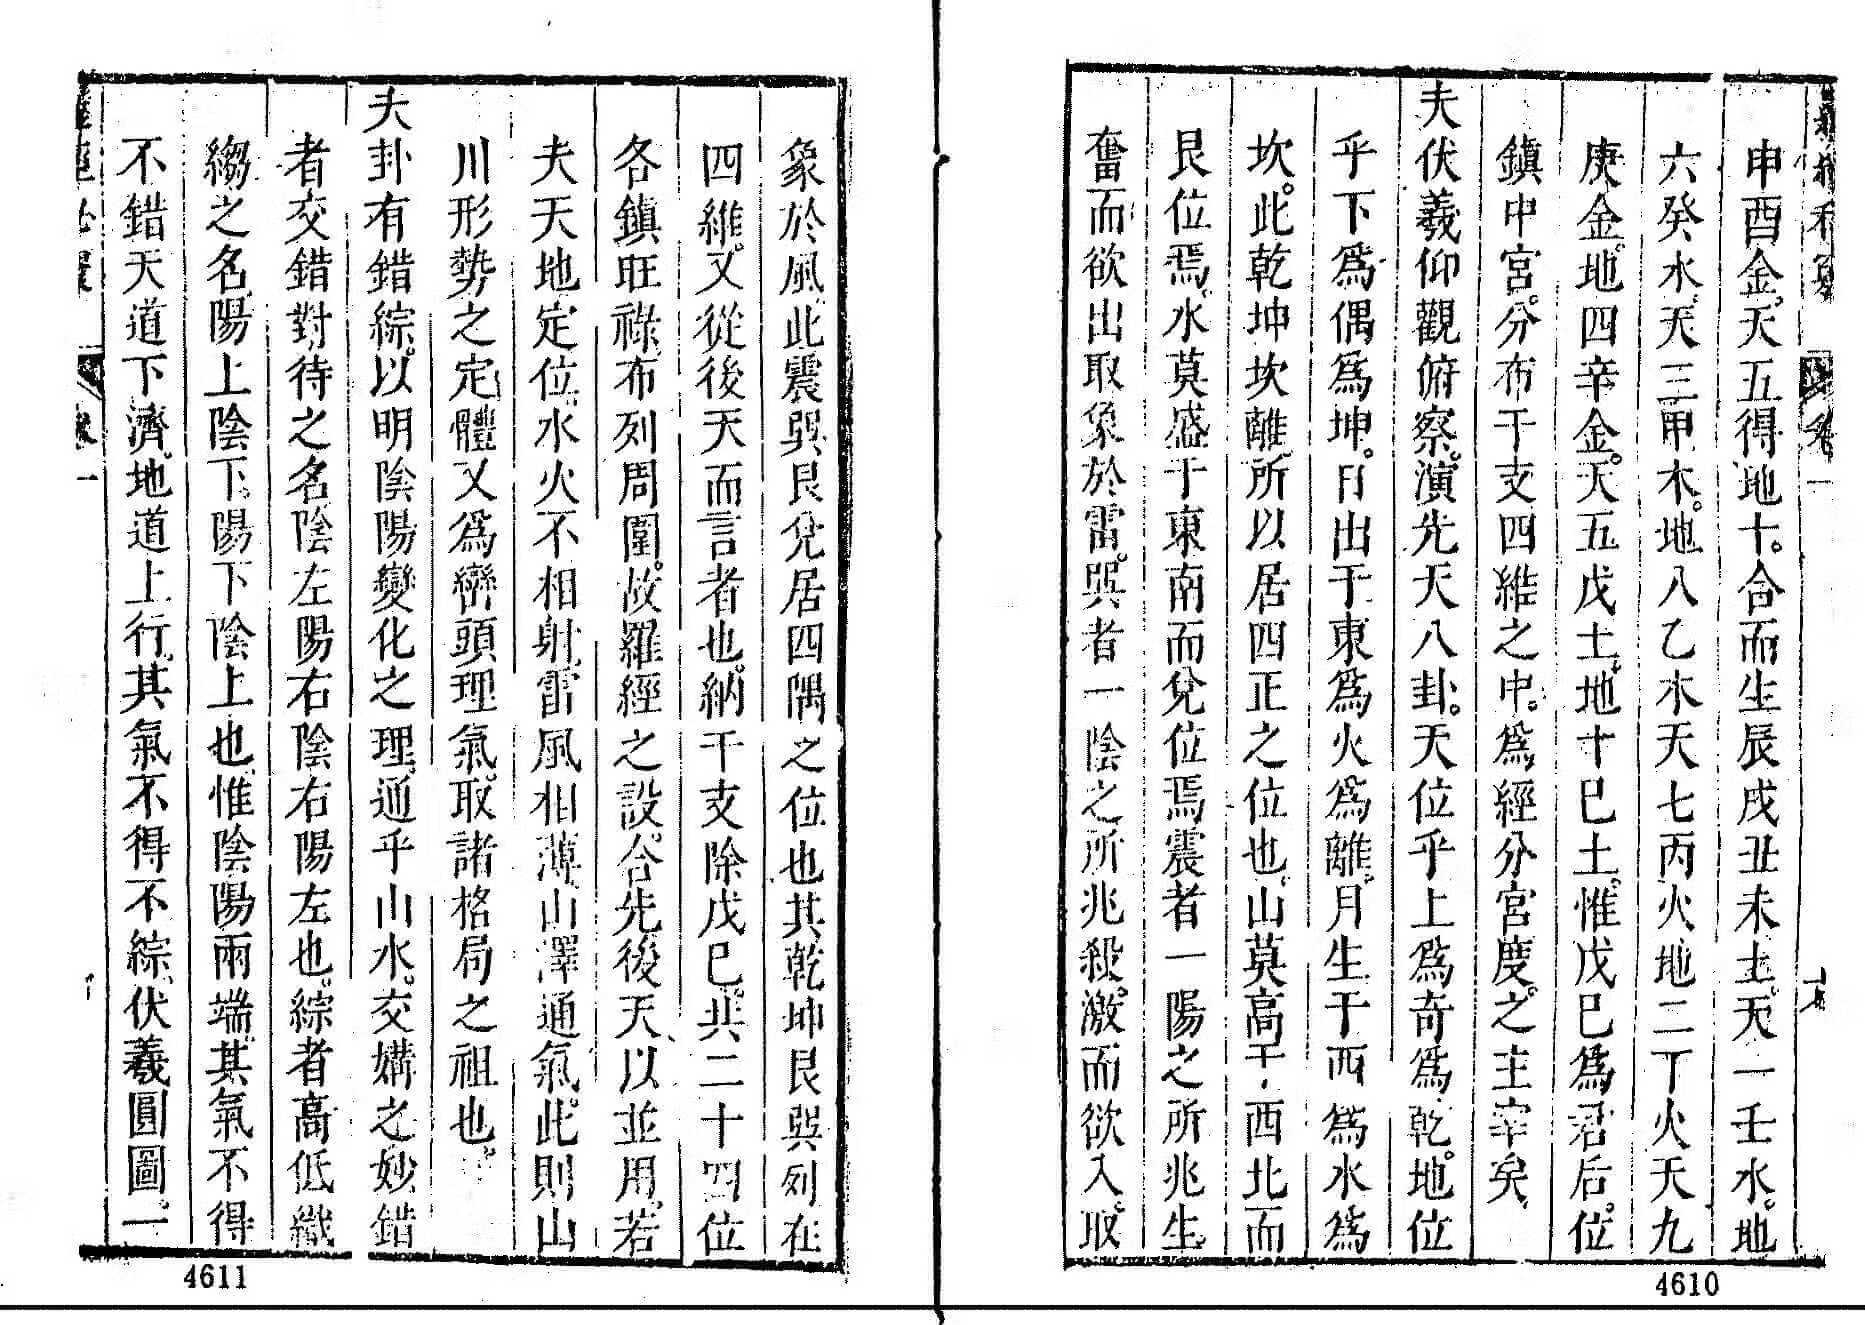 申酉金。天五得地十。合而生辰戌丑未土。天一壬水。地
六癸水。天三甲木。地八乙木天七丙火地二丁火天九
庚金。地四辛金。天五戊土。地十巳土。惟戊巳為君后。位
鎮中宮。分布干支四維之中。為經分宮度。之主宰矣。
夫伏羲仰觀俯察。演先天八卦。天位乎上為奇為乾。地位
乎下為偶為坤。日出于東為火為離。月生于西為水為
坎。此乾坤坎離所以居四正之位也。山莫高于西北而
艮位焉。水莫盛于東南而兌位焉震者一陽之所兆生
奮而欲出取象於雷。巽者一陰之所兆殺。激而欲入。取
4610
象於風。此震巽艮兌居四隅之位也其乾坤艮巽列在
四維。又從後天而言者也。納干支除戊巳。共二十四位
各鎮旺祿。布列周圍。故羅經之設。合先後天、以並用。若
夫天地定位。水火不相射。雷風相薄。山澤通氣。此則山
川形勢之定體又為巒頭理氣。取諸格局之祖也。
夫卦有錯綜。以明陰陽變化之理。通乎山水。交媾之妙錯
者交錯對待之名。陰左陽右陰右陽左也。綜者高低織
縐之名。陽上陰下。陽下陰上也。惟陰陽兩端。其氣不得
不錯天道下濟。地道上行。其氣不得不綜、伏羲圓圖。一
卷一
4611